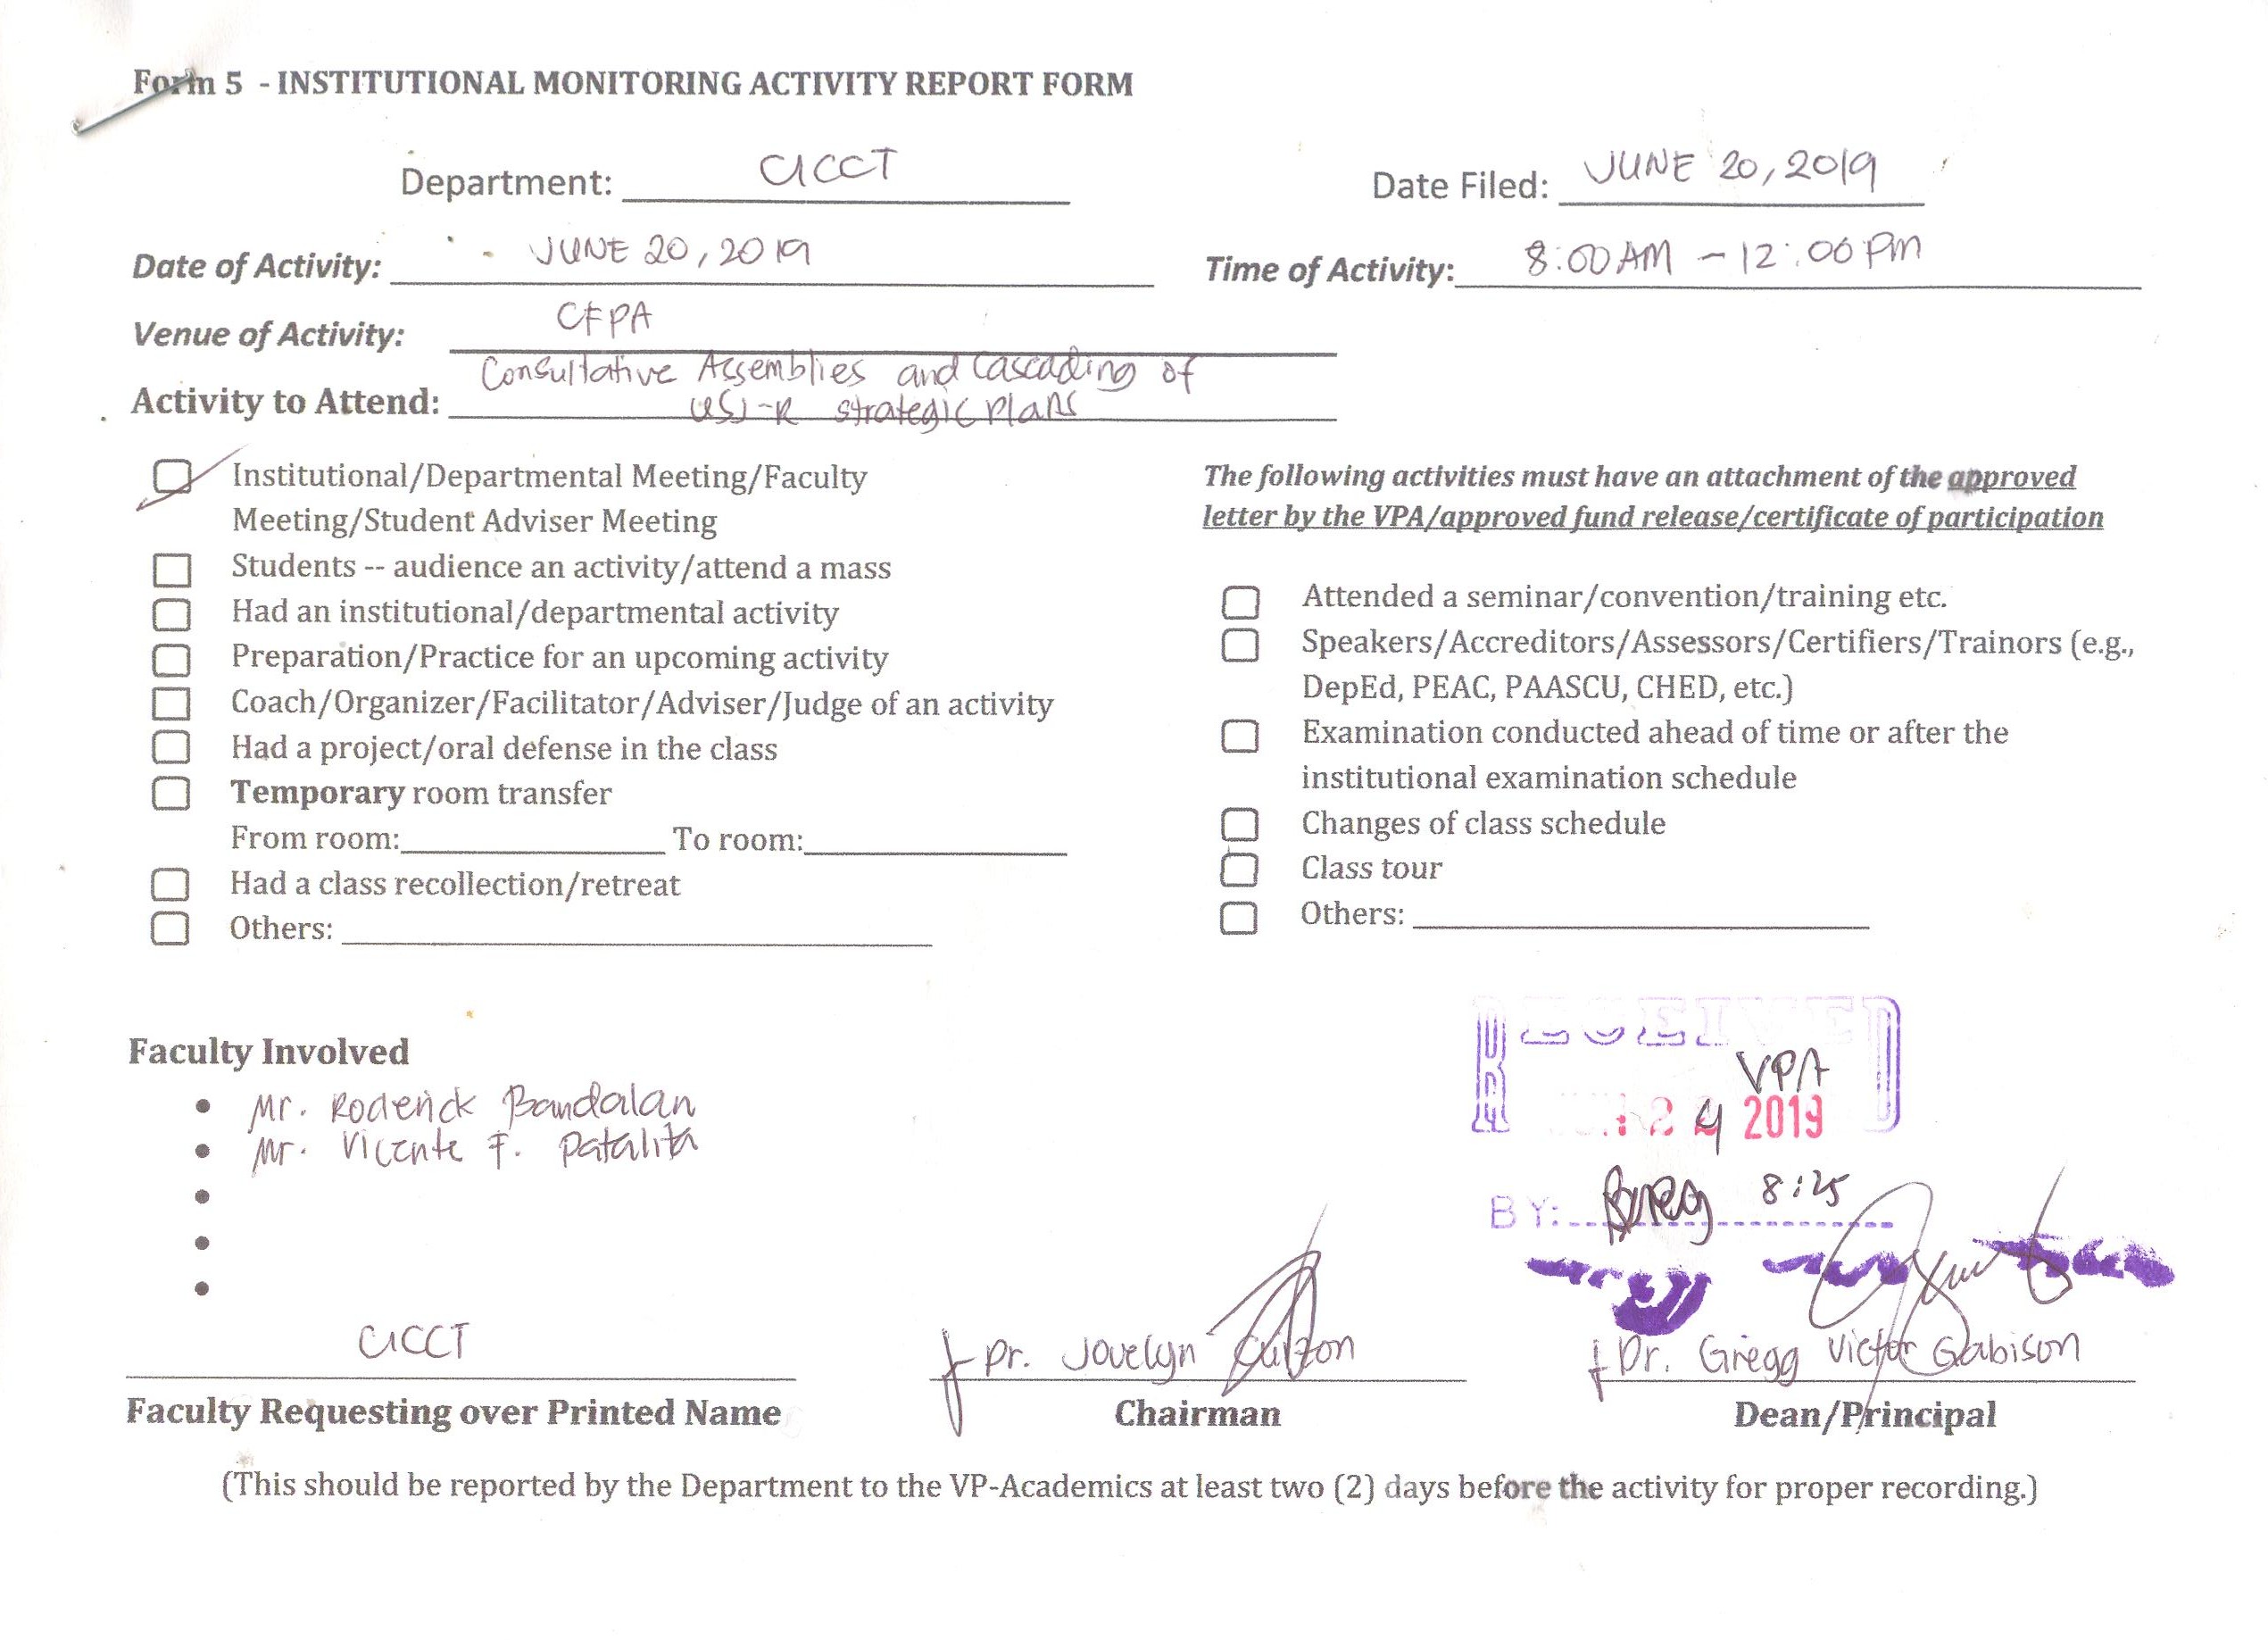 Form 5 - INSTITUTIONAL MONITORING ACTIVITY REPORT FORM
Department: CICCT
Date Filed: JUNE 20, 2019
Date of Activity: JUNE 20, 2019
Time of Activity: 8:00 AM - 12:00 PM
Venue of Activity: CFPA
Consultative Assemblies and Cascading of
Activity to Attend: USJ-R strategic plans
Institutional/Departmental Meeting/Faculty
Meeting/Student Adviser Meeting
Students -- audience an activity/attend a mass
Had an institutional/departmental activity
Preparation/Practice for an upcoming activity
Coach/Organizer/Facilitator/Adviser/Judge of an activity
Had a project/oral defense in the class
Temporary room transfer
From room: To room:
Had a class recollection/retreat
Others:
The following activities must have an attachment of the approved
letter by the VPA/approved fund release/certificate of participation
Attended a seminar/convention/training etc.
Speakers/Accreditors/Assessors/Certifiers/Trainors (e.g.,
DepEd, PEAC, PAASCU, CHED, etc.)
Examination conducted ahead of time or after the
institutional examination schedule
Changes of class schedule
Class tour
Others:
Faculty Involved
• Mr. Roderick Bandalan
• Mr. Vicente F. Patalita
•
•
•
RECEIVED
VPA
24 2019
BY: 8:25
CICCT
Faculty Requesting over Printed Name
Dr. Jovelyn Cuizon
Chairman
Dr. Gregg Victor Gabison
Dean/Principal
(This should be reported by the Department to the VP-Academics at least two (2) days before the activity for proper recording.)